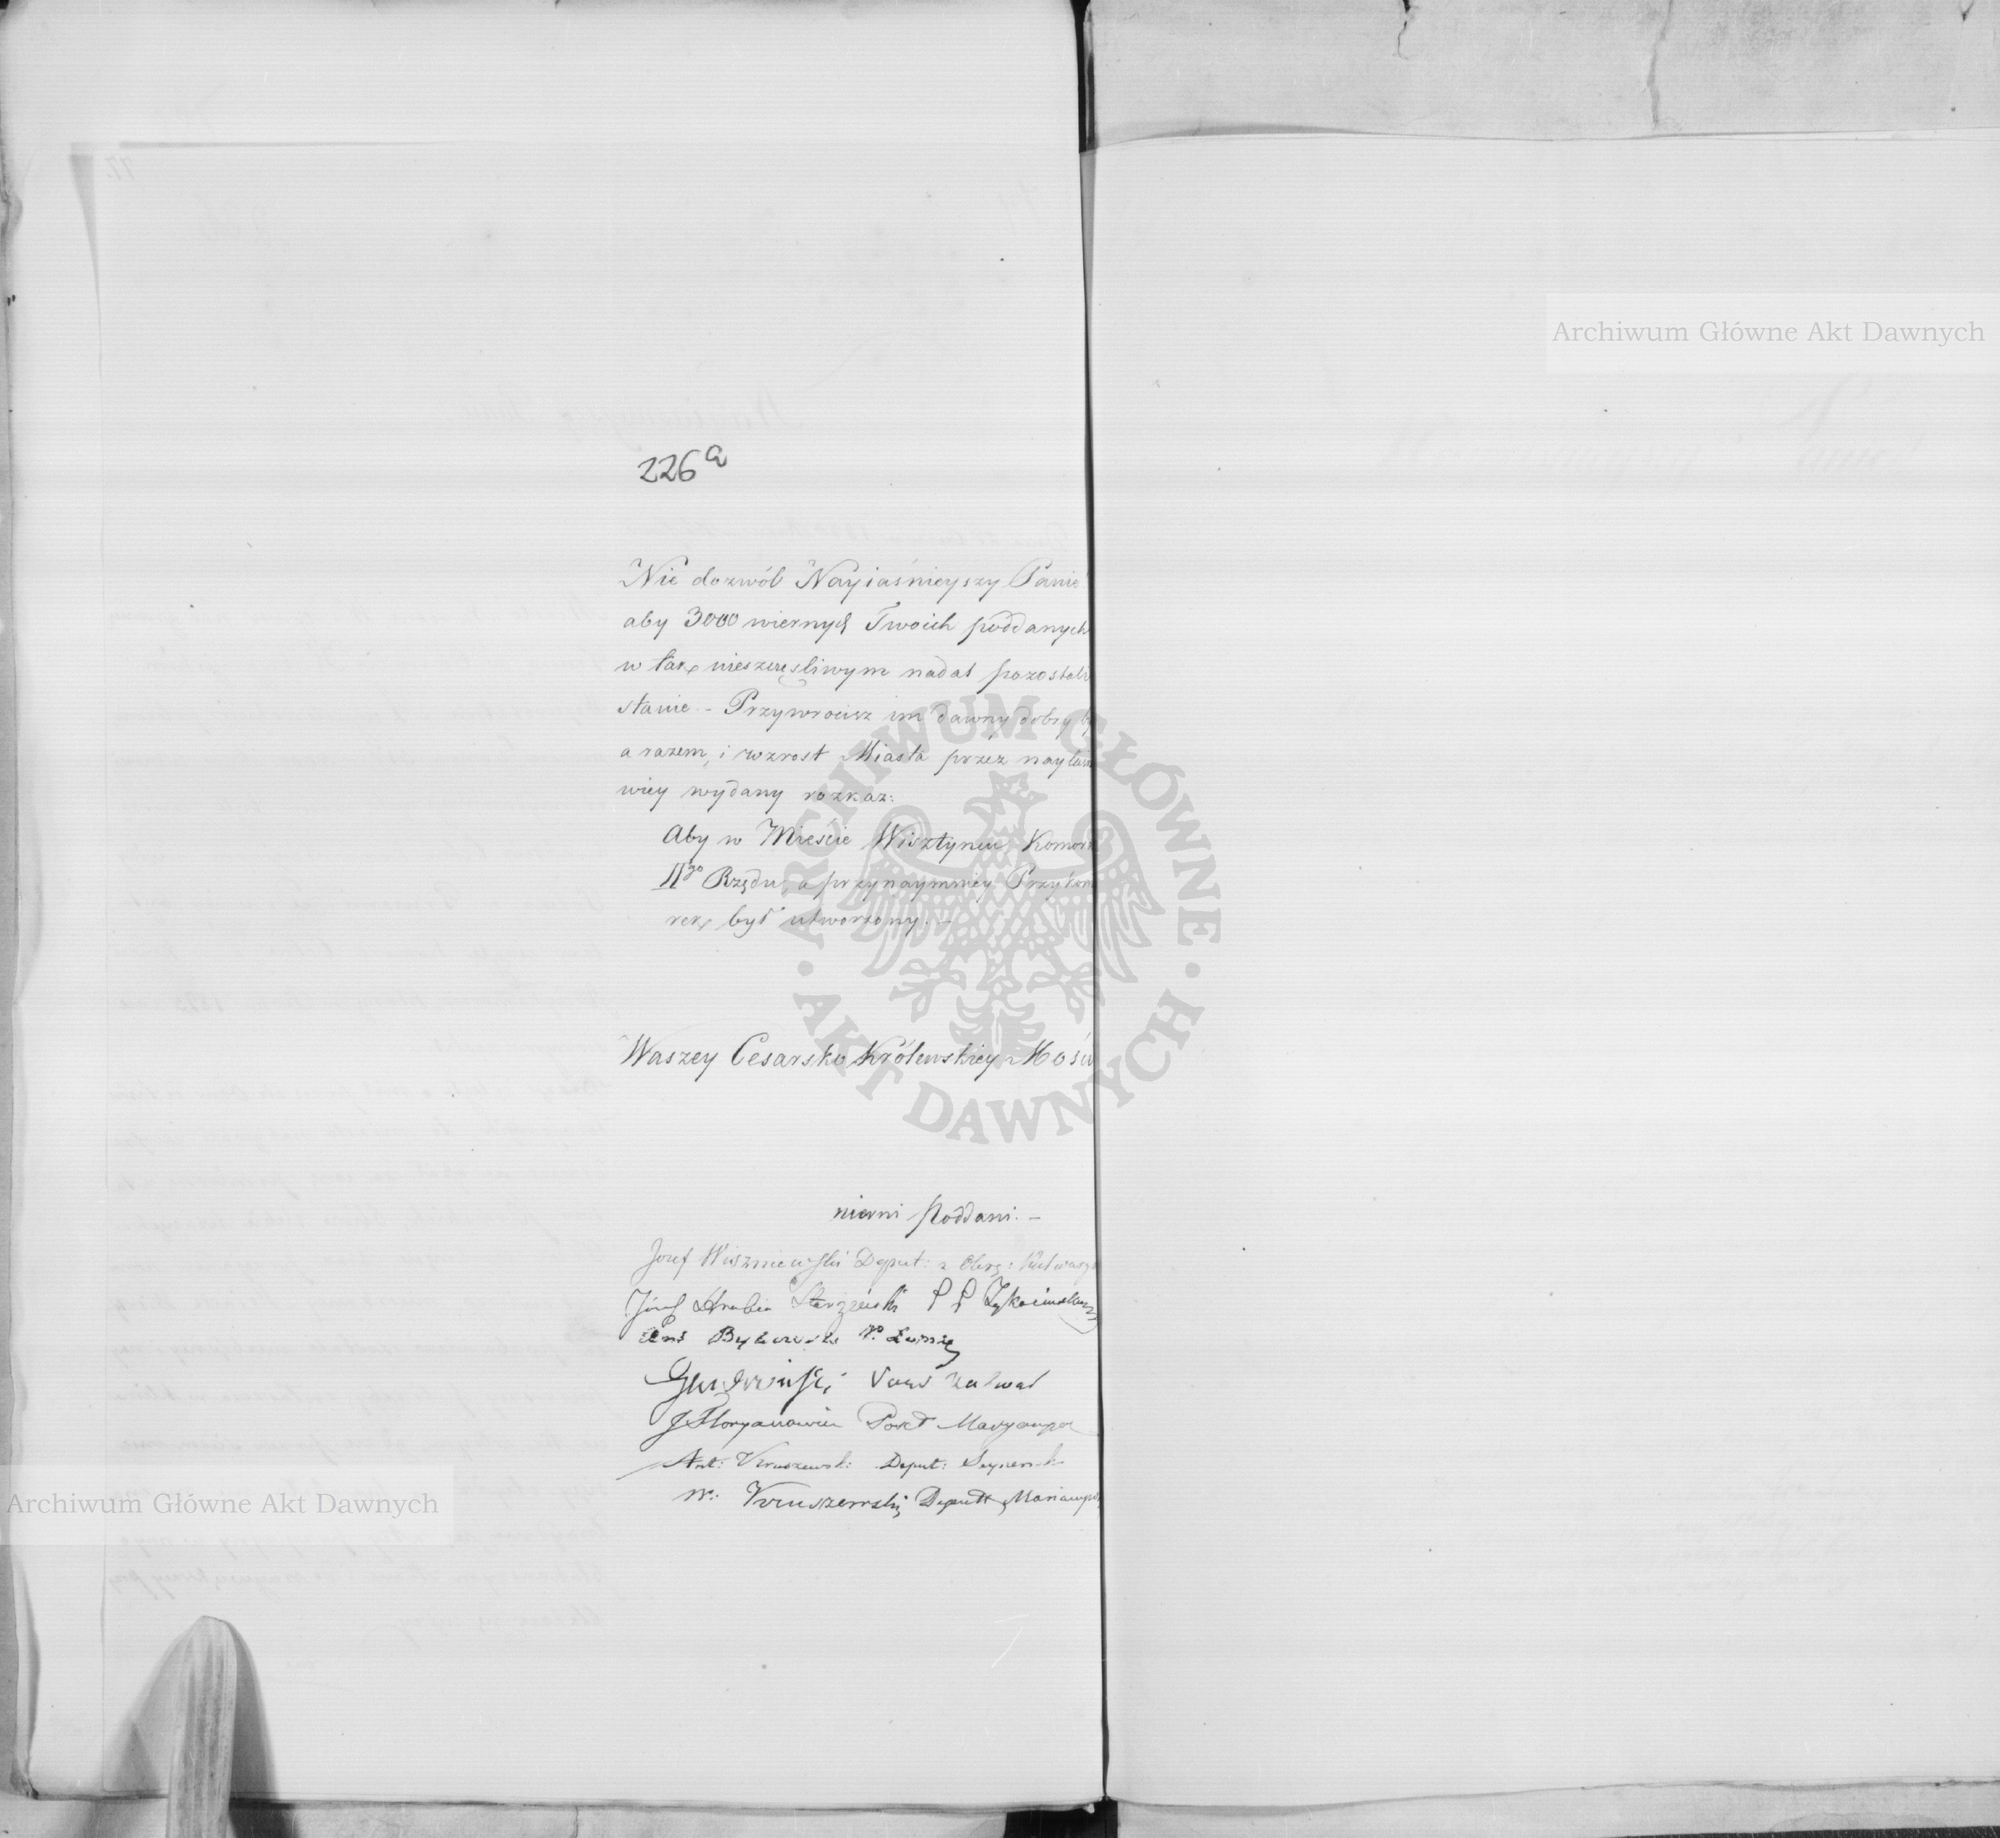 226a
Nie dozwól Nayiaśnieyszy Panie
aby 3000 wiernych Twoich poddanych
w tak nieszczęśliwym nadal pozostali
stanie - Przywrócisz im dawny dobry
a razem, i wzrost Miasta przez nayłas
wiey wydany rozkaz:
Aby w Mieście Wisztyncu Komor
IIgo Rzędu, a przynaymniey Przykom
rek był utworzony. -
Waszey Cesarsko Królewskiey Mości
wierni Poddani. -
Jozef Wiszniewski Deput: z Okrę: Kalwaryi
Józef Hrabia Starzeński P P Tykocinski
Byk
J Floryanowicz Poseł Maryampol
Ant: Kruszewski Deput: Seynensk
W: Kruszewski Deputt Mariampol
Archiwum Główne Akt Dawnych
Archiwum Główne Akt Dawnych
ARCHIWUM GŁÓWNE
AKT DAWNYCH